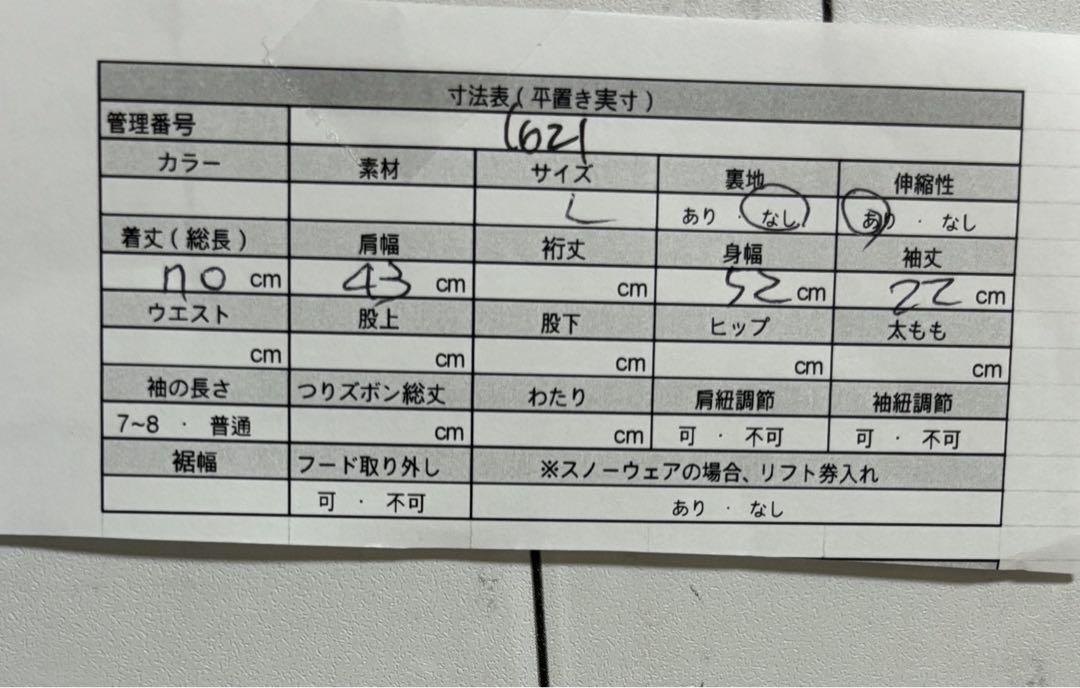 寸法表(平置き実寸)
管理番号 1621
カラー 素材 サイズ 裏地 伸縮性
L あり ・ なし あり ・ なし
着丈(総長) 肩幅 裄丈 身幅 袖丈
cm 43 cm cm 52 cm 22 cm
ウエスト 股上 股下 ヒップ 太もも
cm cm cm cm cm
袖の長さ つりズボン総丈 わたり 肩紐調節 袖紐調節
7~8 ・ 普通 cm cm 可 ・ 不可 可 ・ 不可
裾幅 フード取り外し ※スノーウェアの場合、リフト券入れ
可 ・ 不可 あり ・ なし